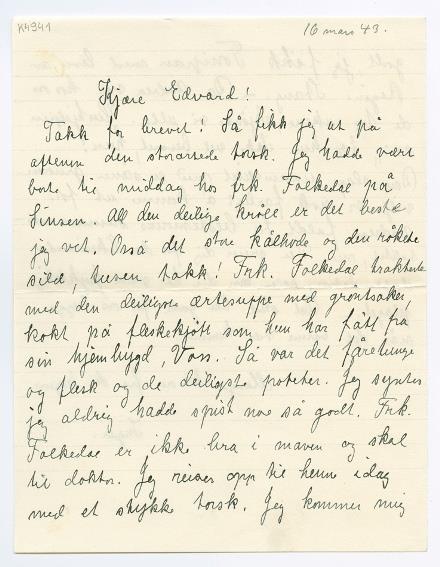 K4941
16 mars 43.
Kjære Edvard!
Takk for brevet! Så fikk jeg ut på
aftenen den storartede torsk. Jeg hadde vært
borte til middag hos frk. Folkedal på
Sinsen. All den deilige krøll er det beste
jeg vet. Også det store kålhode og den røkete
sild, tusen takk! Frk. Folkedal trakterte
med den deiligste ertesuppe med grøntsaker,
kokt på fleskekjøtt som hun har fått fra
sin hjembygd, Voss. Så var det fåretunge
og flesk og de deiligste poteter. Jeg syntes
jeg aldrig hadde spist noe så godt. Frk.
Folkedal er ikke bra i maven og skal
til doktor. Jeg reiser opp til henne idag
med et stykke torsk. Jeg kommer mig